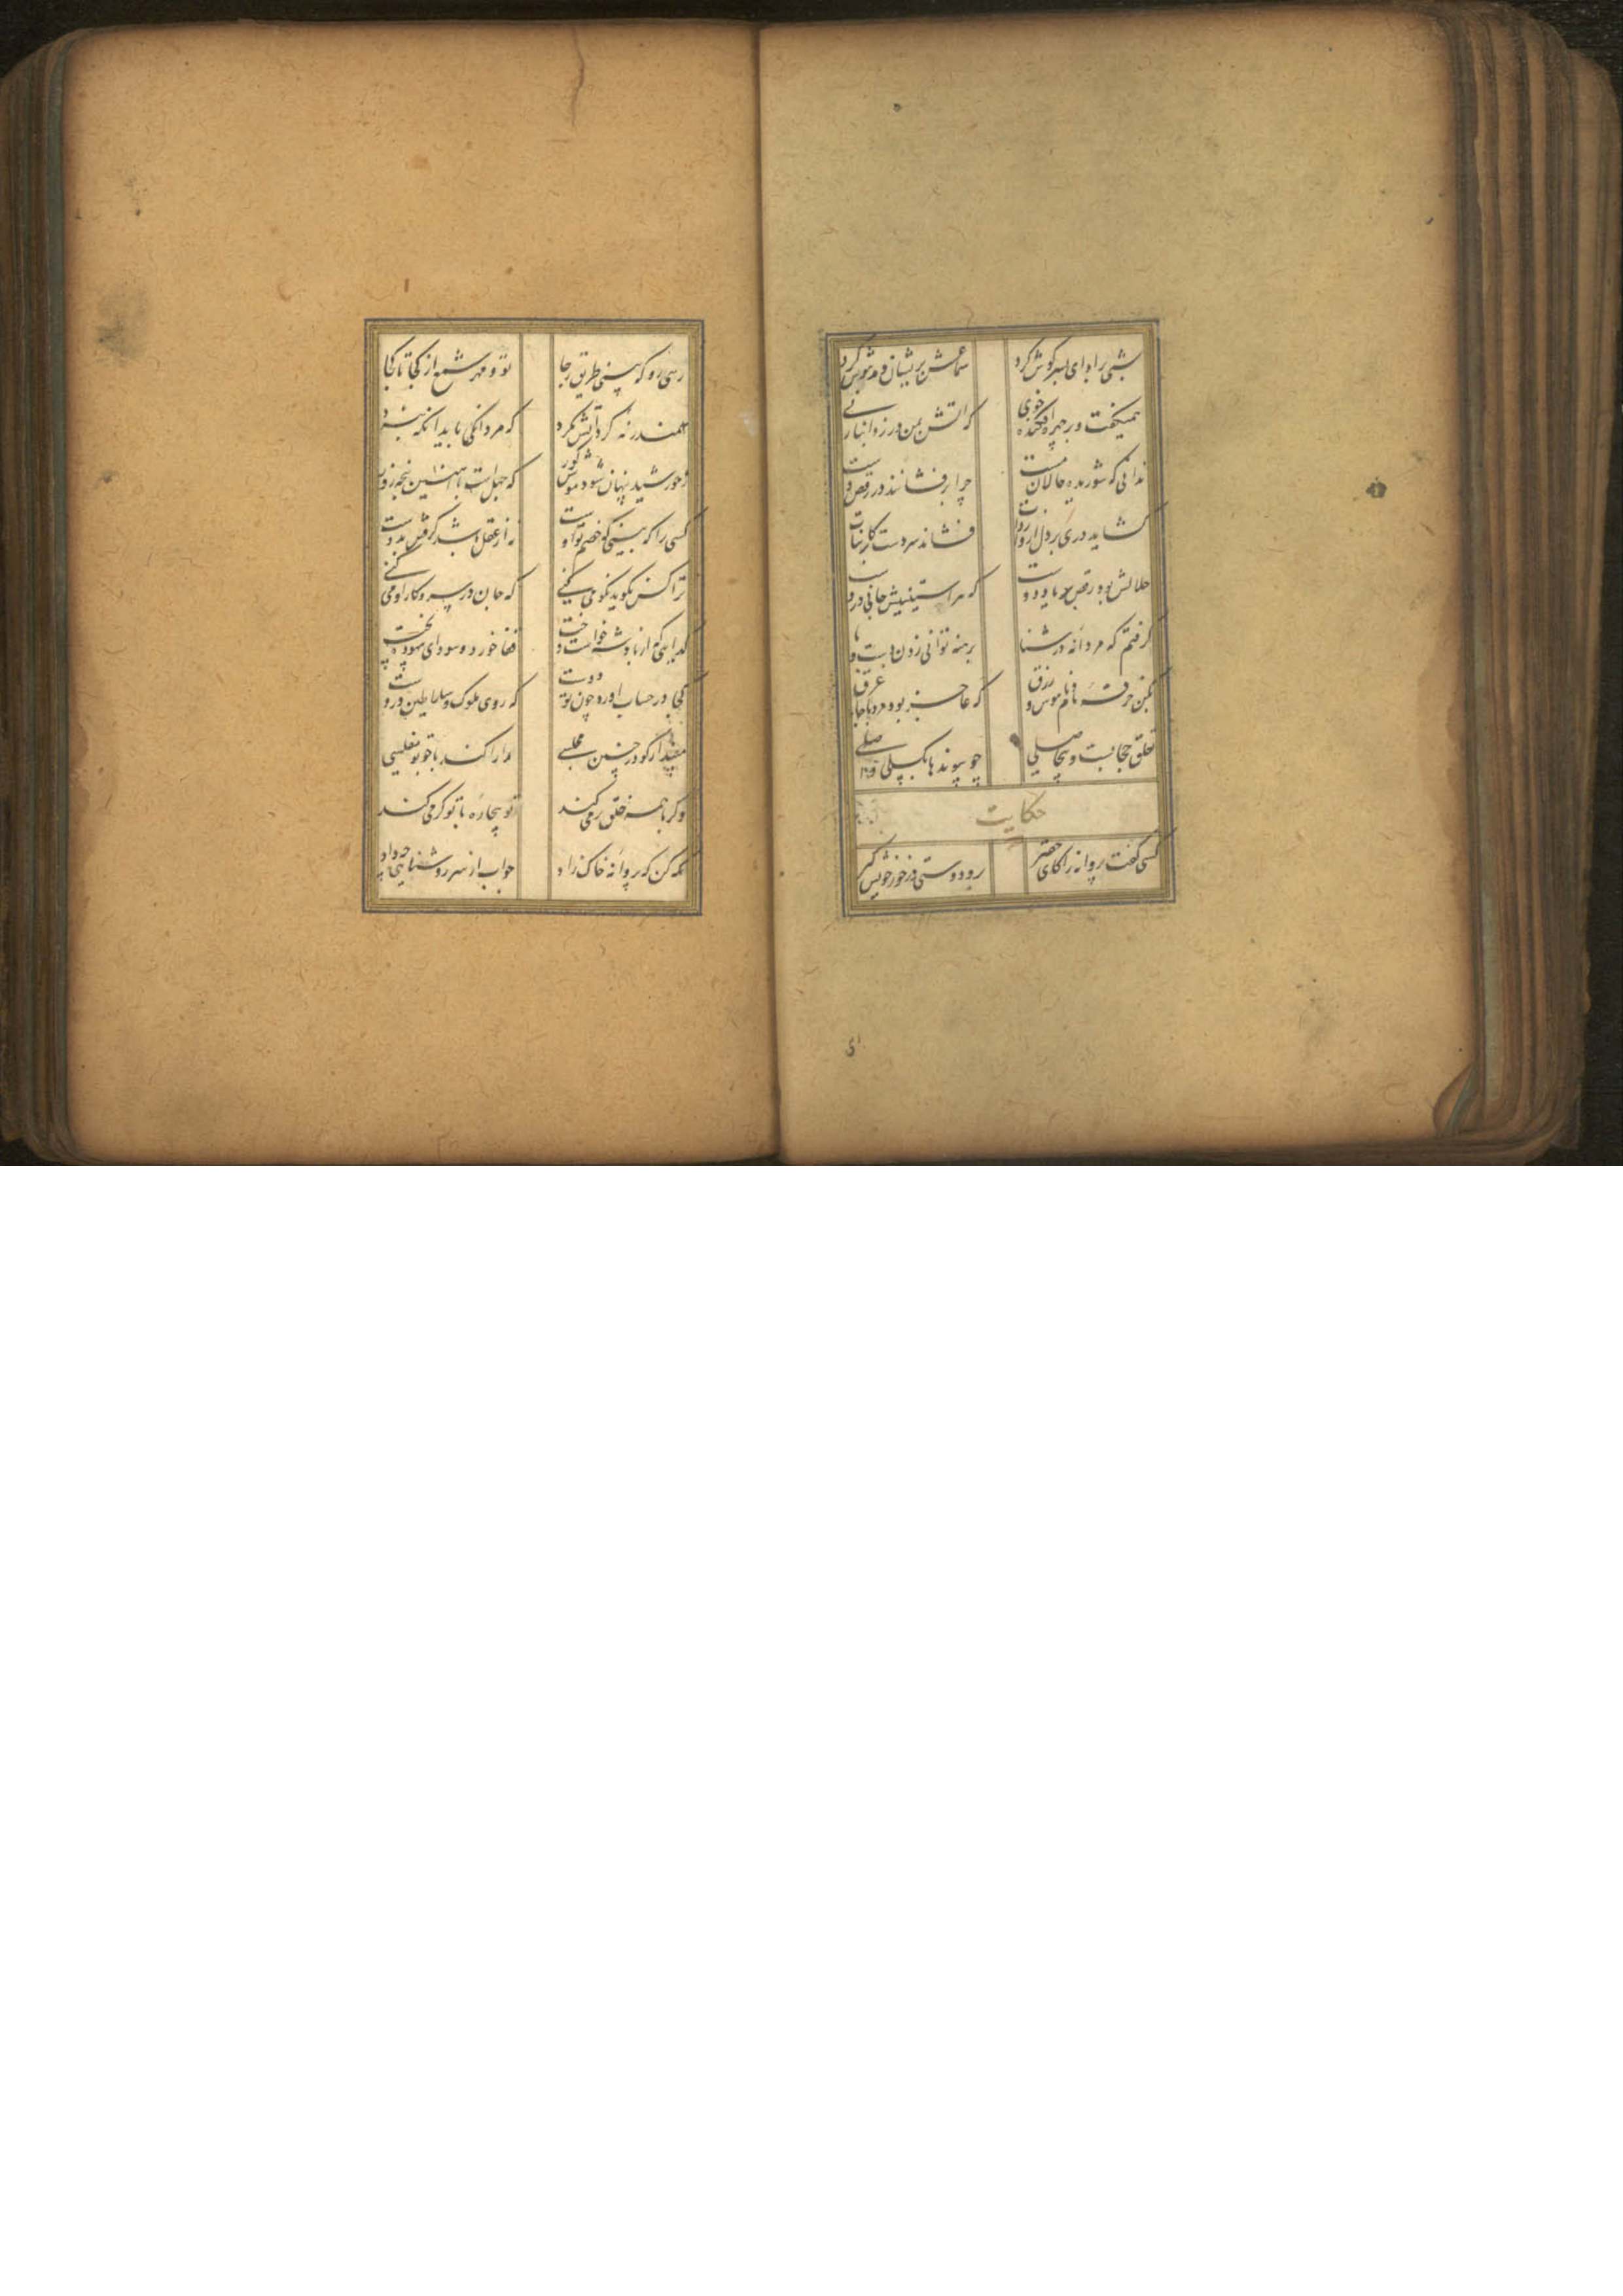 شبی را ادای پسر گوش کرد سماعش پریشان و مدهوش کرد
همیگفت و بر چهره افکنده خوی که آتش بمن در زد این بار نی
ندانی که شوریده حالان مست چرا برفشانند در رقص دست
گشاید دری بر دل از واردات فشاند سر دست بر کاینات
حلالش بود رقص بر یاد دوست که هر آستینیش جانی دروست
گرفتم که مردانه در شنا برهنه توانی زدن دست و پا
بکن خرقه نام و ناموس و زرق که عاجز بود مرد با جامه غرق
تعلق حجابست و بیحاصلی چو پیوندها بگسلی واصلی
حکایت
کسی گفت پروانه را کای حقیر برو دوستی در خور خویش گیر
رهی رو که بینی طریق رجا تو و مهر شمع از کجا تا کجا
سمندر نه گرد آتش مگرد که مردانگی باید آنگه نبرد
ز خورشید پنهان شود موش کور که جهل است با آهنین پنجه زور
کسی را که بینی که خصم تو اوست نه از عقل باشد گرفتن بدوست
ترا کس نگوید نکو می‌کنی که جان در سر و کار او می‌کنی
گدایی که از پادشه خواست دخت قفا خورد و سودای بیهوده پخت
کجا در حساب آورد چون تو دوست که روی ملوک و سلاطین دروست
مپندار کو در چنین مجلسی مدارا کند با چو تو مفلسی
وگر با همه خلق نرمی کند تو بیچاره با تو گرمی کند
نگه کن که پروانه خاک زاد جواب از سر روشنایی چه داد